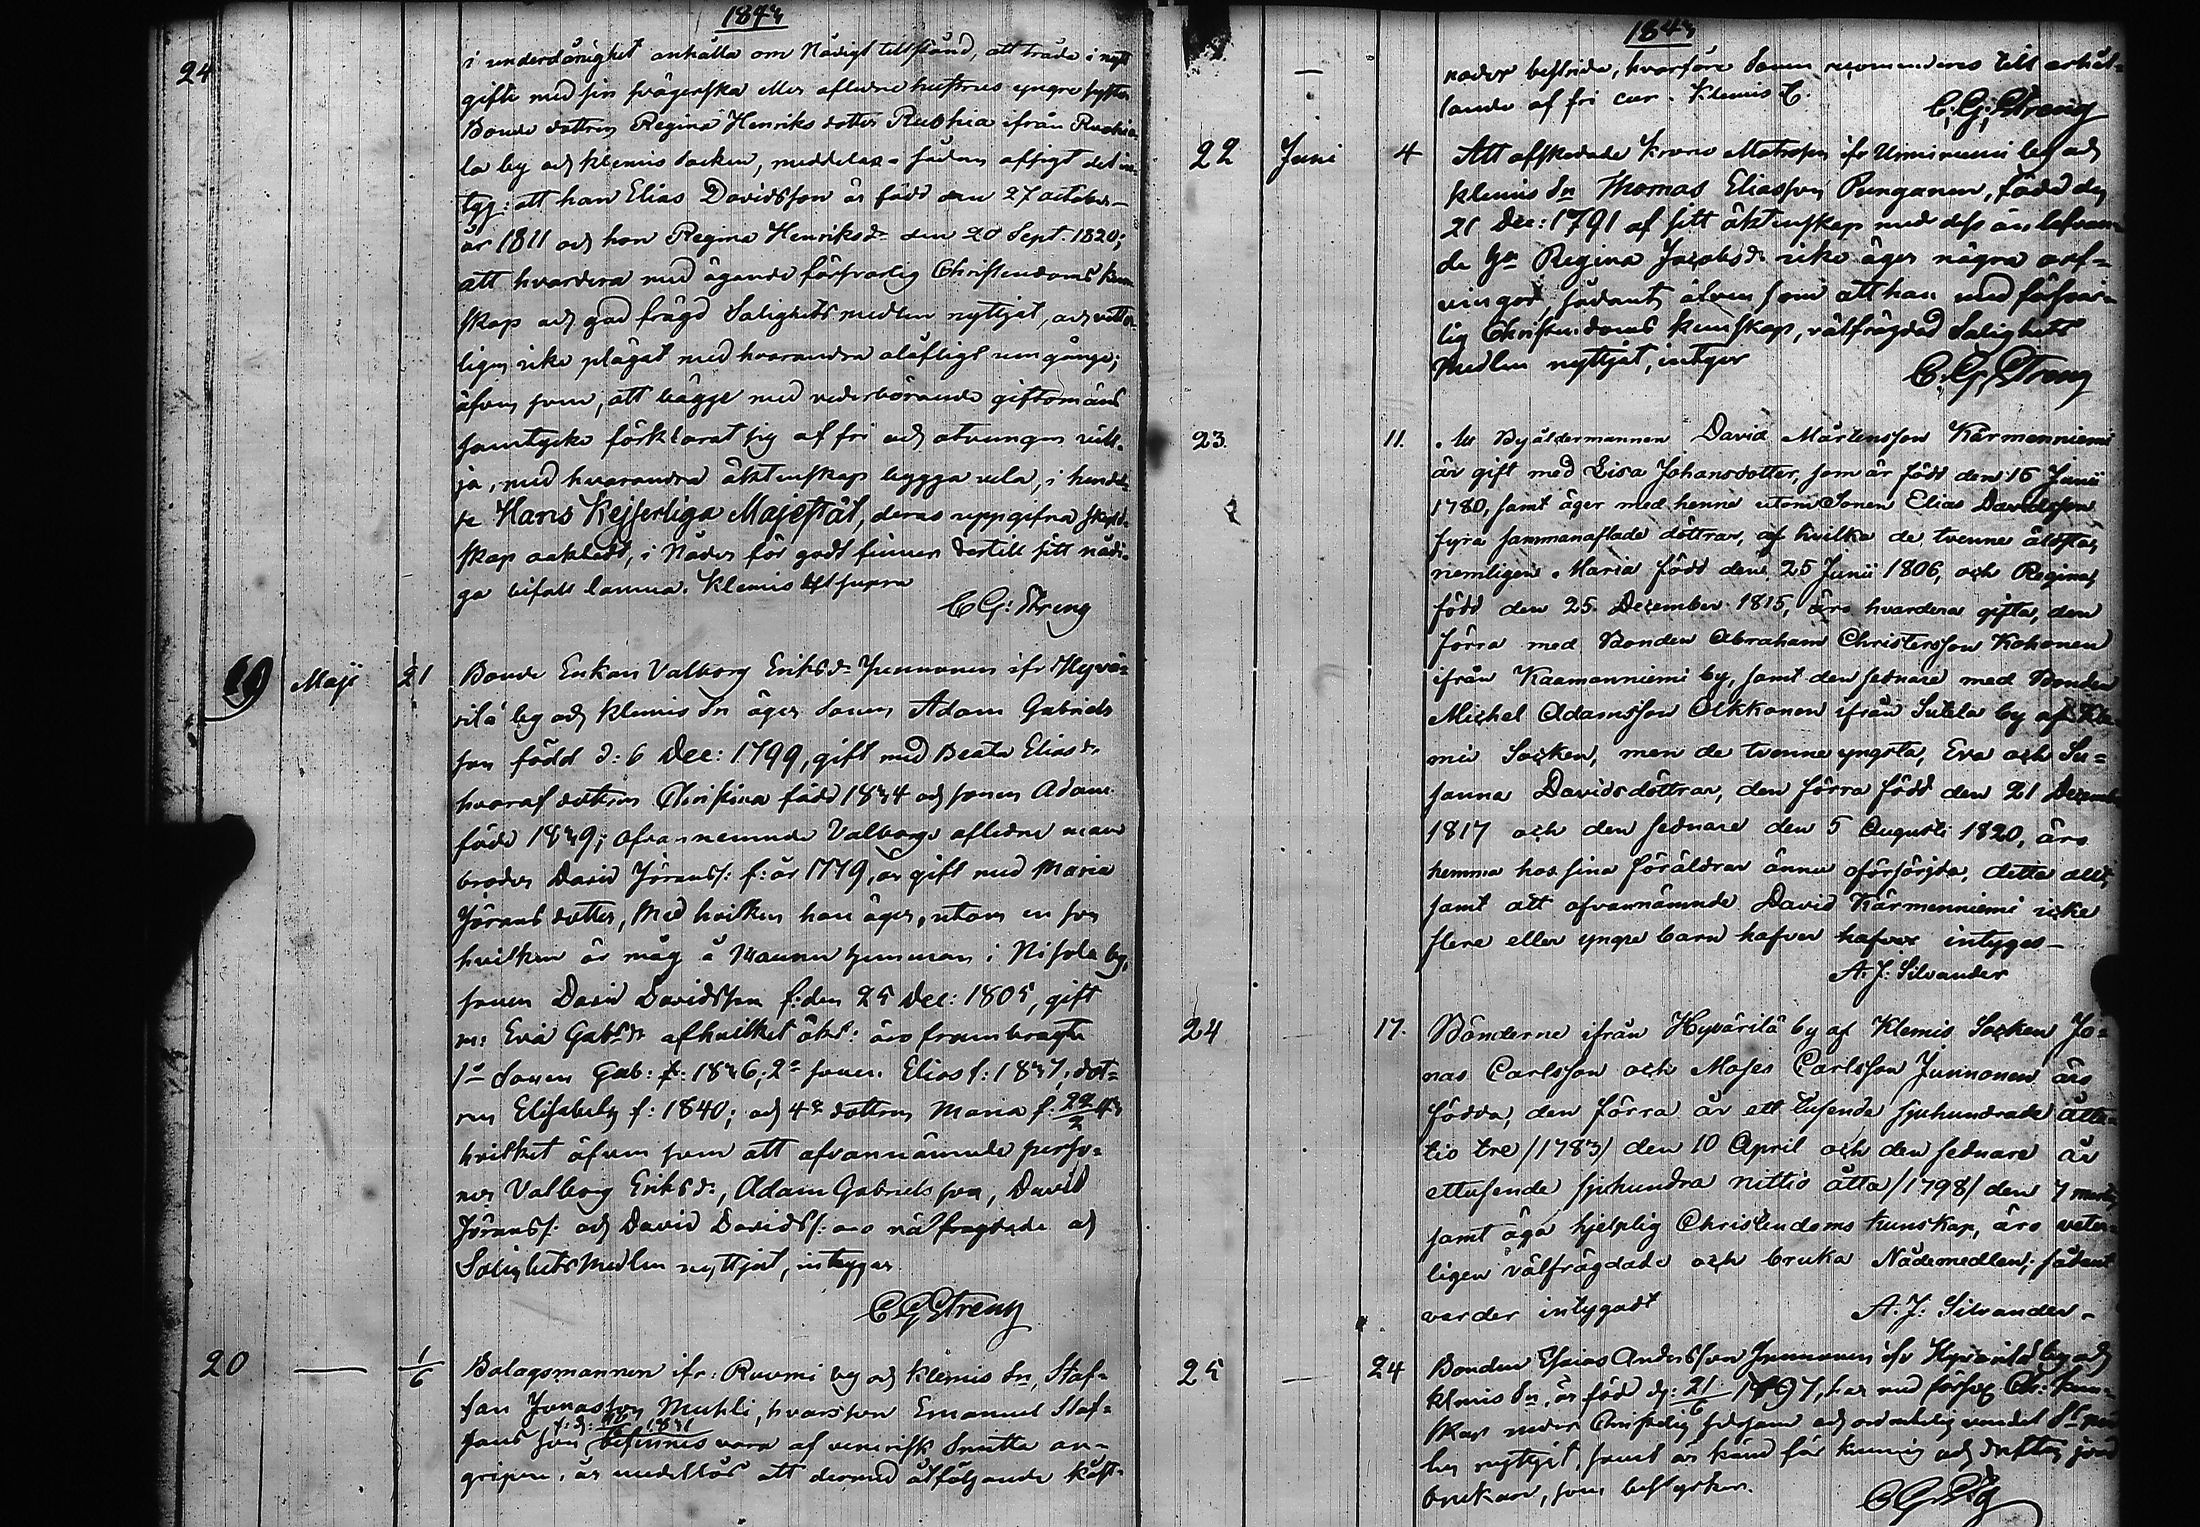 1843
24
i underdånighet anhålla om Nådigt tillstånd, att träda i nytt
gifte med sin svägerska eller aflidne hustrus yngre syster
Bonde dottren Regina Henriks dotter Ruohia ifrån Ruohia-
la by och Klemis Socken, meddelas
tyg: att han Elias Davidsson är född den 27 october
år 1811 och hon Regina Henriksdr den 20 Sept. 1820;
att hvardera med ägande försvarlig Christendoms kun-
skap och god frägd Salighetsmedlen nyttjat, och vetter-
ligen icke plägat med hvarandra olofligt umgänge;
äfven som, att bägge med vederbörande giftomäns
samtycke förklarat sig af fri och otvungen vill-
ja, med hvarandra äktenskap bygga vela, i händel-
se Hans Kejserliga Majestät, deras uppgifna
skap oaktadt, i Nåder för godt finner dertill sitt nådi-
ga bifall lämna. Klemis ut supra
C G: Streng
19 Maji 21 Bonde Enkan Valborg Eriksdr Junnonen ifr Hyvä-
rilä by och Klemis Sn äger Sonen Adam Gabriels
son född d: 6 Dec: 1799, gift med Beata Eliasdr
hvaraf dottren Christina född 1834 och sonen Adam
född 1839; ofvannemnde Valborgs aflidne mans
broder David Jöranss: f: år 1779, är gift med Maria
Jörans dotter, Med hvilken han äger, utom en son
hvilken är måg å i Nisola by,
sonen David Davidsson f: den 25 Dec: 1805, gift
m: Eva Gabrsdr af hvilket äkt: äro frambragte
1o Sonen Gab: f: 1836; 2o sonen Elias f: 1837, dot-
ren Elisabeth f: 1840; och 4o dottren Maria f: 22/2 43
hvilket äfven som att ofvannämnde perso-
ner Valborg Eriksdr, Adam Gabriels son, David
Jöranss: och David Davidss: äro välfrägdade och
Salighets Medlen nyttjat, intygar
C G Streng
20 — 1/6 Bolagsmannen ifr: Ruomi by och Klemis Sn, Staf-
fan Jonasson Muhli, hvars son Emanuel Staf-
1831
fans son befinnes vara af venerisk Smitta an-
gripen, är medellös att dermed åtföljande kost-
1843
— nader bestrida, hvarföre Sonen recommenderas till erhål-
lande af fri cur. Klemis
C. G: Streng
22 Juni 4 Att afskedade Krono Matrosen ifr by och
Klemis Sn Thomas Eliasson Punganen, född den
21 Dec: 1791 af sitt äktenskap med dess än lefvan-
de Regina Jacobsdr icke äger några arf-
vingar, sådant, äfven som att han med försvar-
lig Christendoms kunskap, välfrägdad Salighets
Medlen nyttjat, intygar
C. G. Streng
23. 11. Att Byåldermannen David Mårtensson Kärmenniemi
är gift med Lisa Johansdotter, som är född den 16 Junii
1780, samt äger med henne utom Sonen Elias Davidsson
fyra sammanaflade döttrar, af hvilka de tvenne äldsta,
nemligen Maria född den 25 Junii 1806, och Regina,
född den 25 December 1815, äro hvardera gifta, den
förra med Bonden Abraham Christersson Kohonen
ifrån Kaamanniemi by, samt den sednare med Bonden
Michel Adamsson Olkkonen ifrån Sutela by af Kle-
mis Socken, men de tvenne yngsta, Eva och Su-
sanna Davidsdöttrar, den förra född den 21 December
1817 och den sednare den 5 Augusti 1820, äro
hemma hos sina föräldrar ännu oförsörjda, detta allt,
samt att ofvannämnde David Kärmenniemi icke
flere eller yngre barn hafver hafver intygas —
A. J: Silvander
24 17. Bönderne ifrån Hyvärilä by af Klemis Socken Jo-
nas Carlsson och Moses Carlsson Junnonen äro
födda, den förra år ett tusende sjuhundrade åtta-
tio tre /1783/ den 10 April och den sednare år
ettusende sjuhundra nittio åtta /1798/ den 7
samt äga hjelplig Christendoms kunskap, äro veter-
ligen välfrägdade och bruka Nådemedlen; sådant
varder intygadt A. J: Silvander —
25 — 24 Bonden Esaias Andersson Junnonen ifr Hyvärilä by och
Klemis Sn, är född d: 21/6 1797, har med
skap under Christelig och
len nyttjat, samt är känd för kunnig och driftig jord
brukare, som bestyrkes.